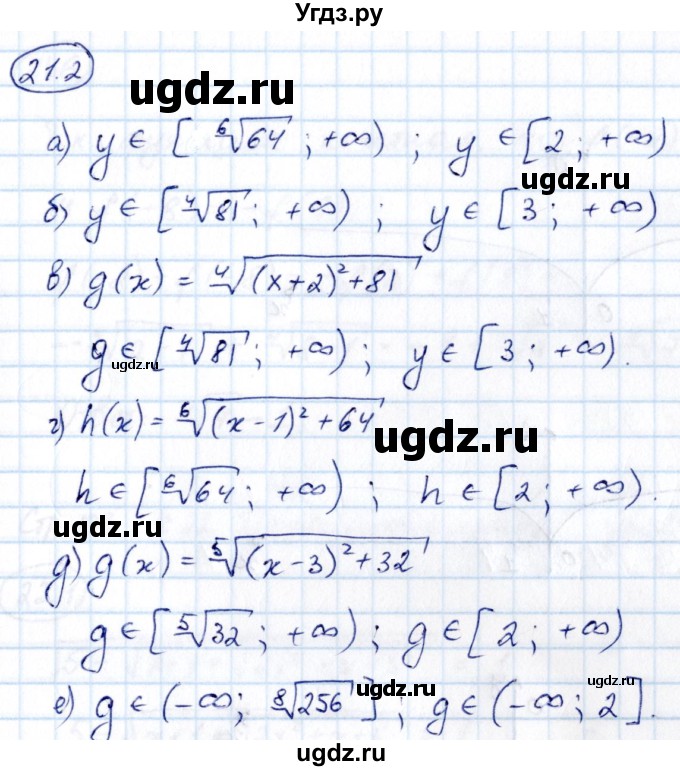 Угдз.ру
21.2
ugdz.ru
а) y ∈ [⁶√64; +∞); y ∈ [2; +∞)
ugdz.ru
б) y ∈ [⁴√81; +∞); y ∈ [3; +∞)
в) g(x) = ⁴√((x+2)²+81)
g ∈ [⁴√81; +∞); y ∈ [3; +∞).
ugdz.ru
г) h(x) = ⁶√((x-1)²+64)
ugdz.ru
h ∈ [⁶√64; +∞); h ∈ [2; +∞).
ugdz.ru
д) g(x) = ⁵√((x-3)²+32)
g ∈ [⁵√32; +∞); g ∈ [2; +∞)
ugdz.ru
ugdz.ru
е) g ∈ (-∞; ⁸√256]; g ∈ (-∞; 2].
ugdz.ru